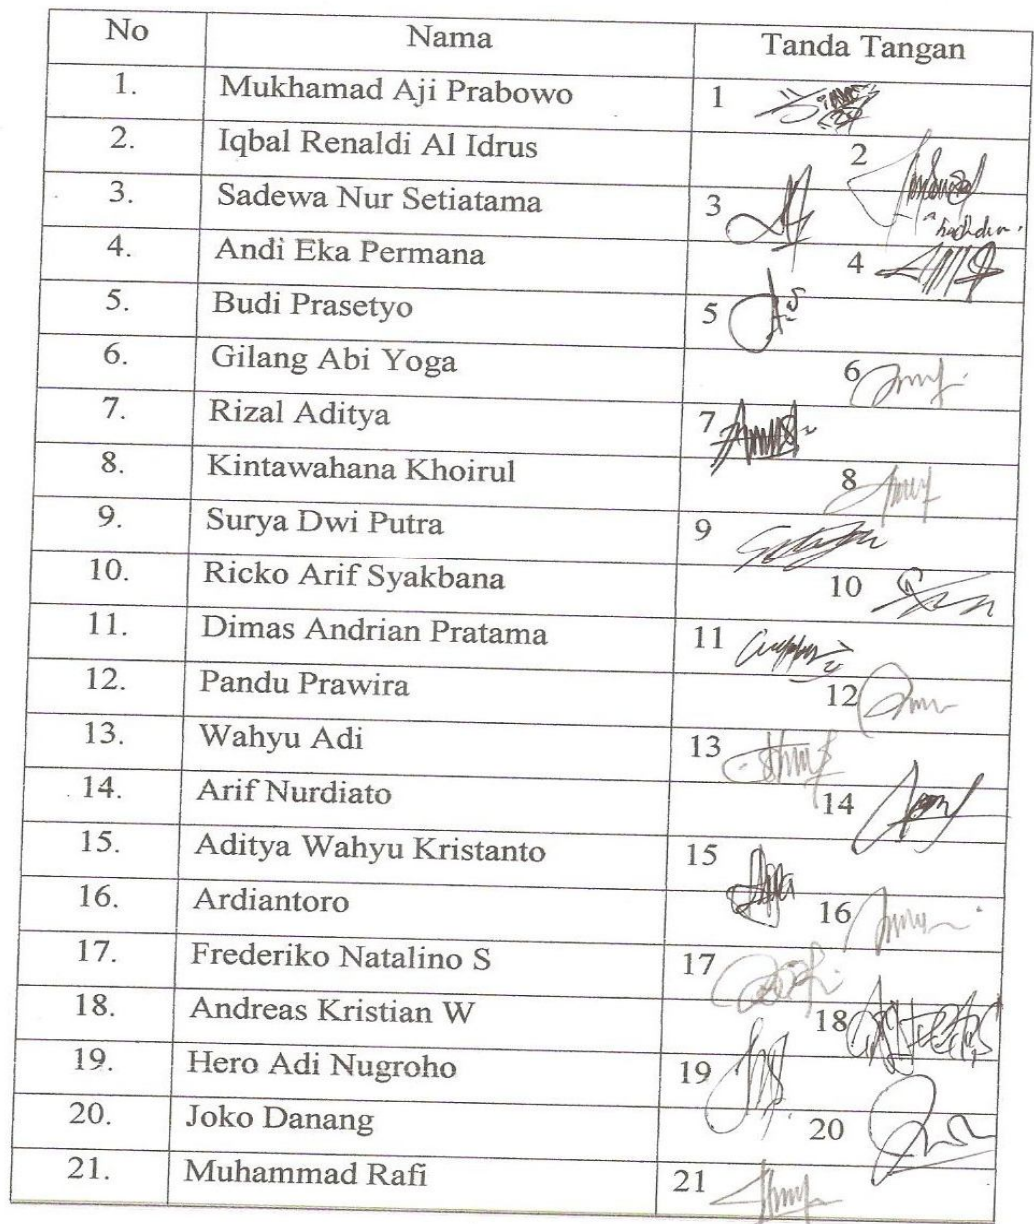 No Nama Tanda Tangan
1. Mukhamad Aji Prabowo 1
2. Iqbal Renaldi Al Idrus 2
3. Sadewa Nur Setiatama 3
4. Andi Eka Permana 4
5. Budi Prasetyo 5
6. Gilang Abi Yoga 6
7. Rizal Aditya 7
8. Kintawahana Khoirul 8
9. Surya Dwi Putra 9
10. Ricko Arif Syakbana 10
11. Dimas Andrian Pratama 11
12. Pandu Prawira 12
13. Wahyu Adi 13
14. Arif Nurdiato 14
15. Aditya Wahyu Kristanto 15
16. Ardiantoro 16
17. Frederiko Natalino S 17
18. Andreas Kristian W 18
19. Hero Adi Nugroho 19
20. Joko Danang 20
21. Muhammad Rafi 21